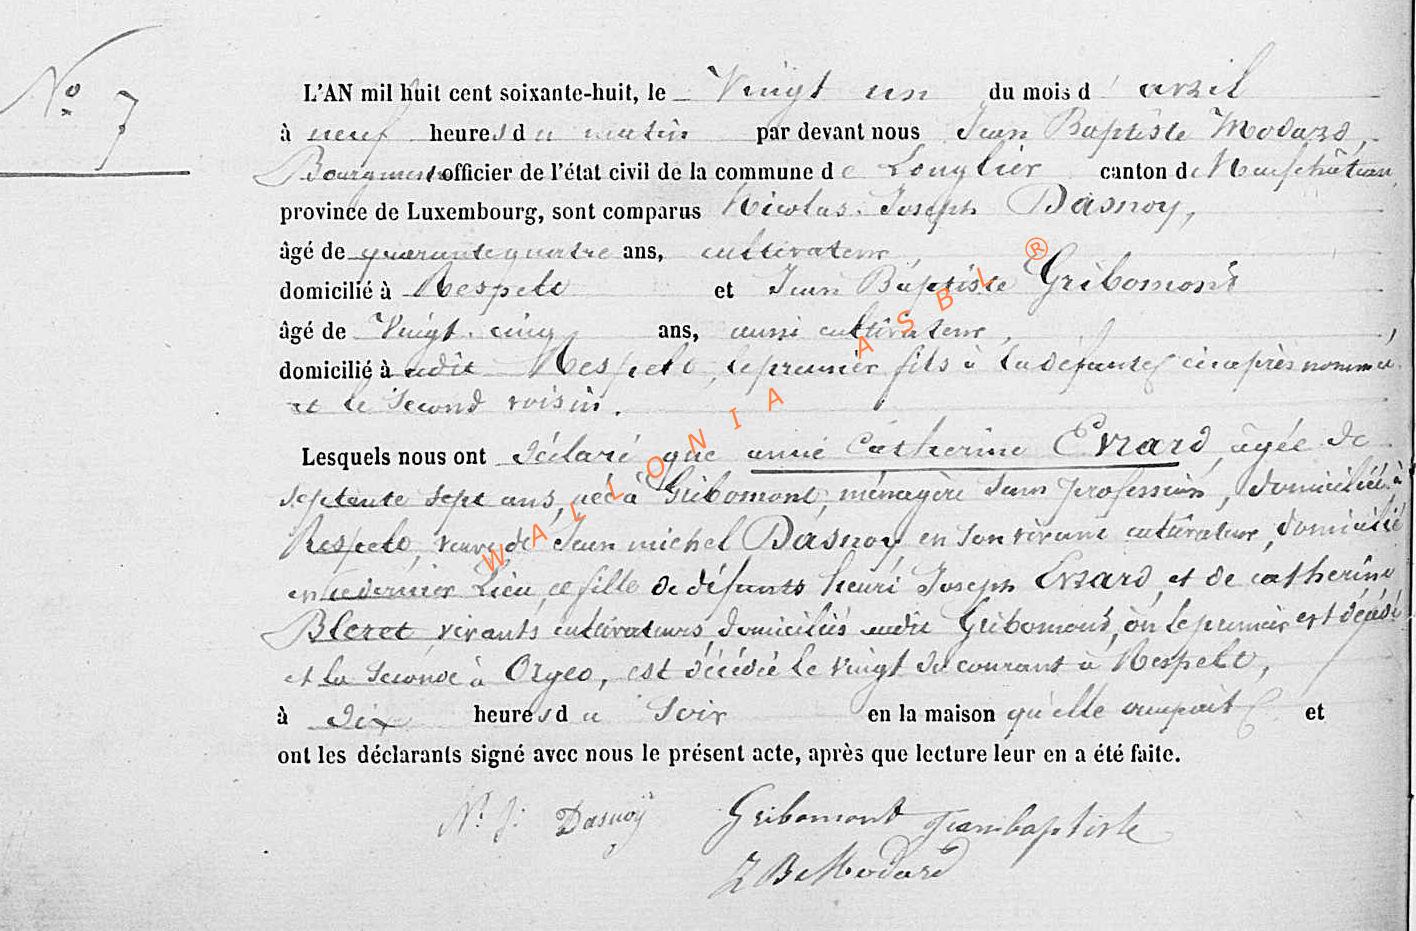 N° 7
L'AN mil huit cent soixante-huit, le Vingt un du mois d'avril
à neuf heures du matin par devant nous Jean Baptiste Modard,
Bourgmestre officier de l'état civil de la commune de Longlier canton de Neufchâteau,
province de Luxembourg, sont comparus Nicolas Joseph Dasnoy,
âgé de quarante quatre ans, cultivateur,
domicilié à Respelt et Jean Baptiste Gribomont
âgé de Vingt cinq ans, aussi cultivateur,
domicilié à audit Respelt, le premier fils à la défunte ci après nommée
et le second voisin.
Lesquels nous ont déclaré que anne Catherine Evrard, âgée de
septante sept ans, née à Gribomont, ménagère sans profession, domiciliée à
Respelt, veuve de Jean michel Dasnoy en son vivant cultivateur, domicilié
en ce dernier Lieu, fille de défunts henri Joseph Evrard, et de catherine
Bleret vivants cultivateurs, domiciliés audit Gribomont, où le premier est décédé
et la seconde à Orgeo, est décédée le vingt du courant à Respelt,
à dix heures du soir en la maison qu'elle occupait et
ont les déclarants signé avec nous le présent acte, après que lecture leur en a été faite.
N. J. Dasnoÿ Gribomont Jeanbaptiste
J B Modard
WALLONIA ASBL ®